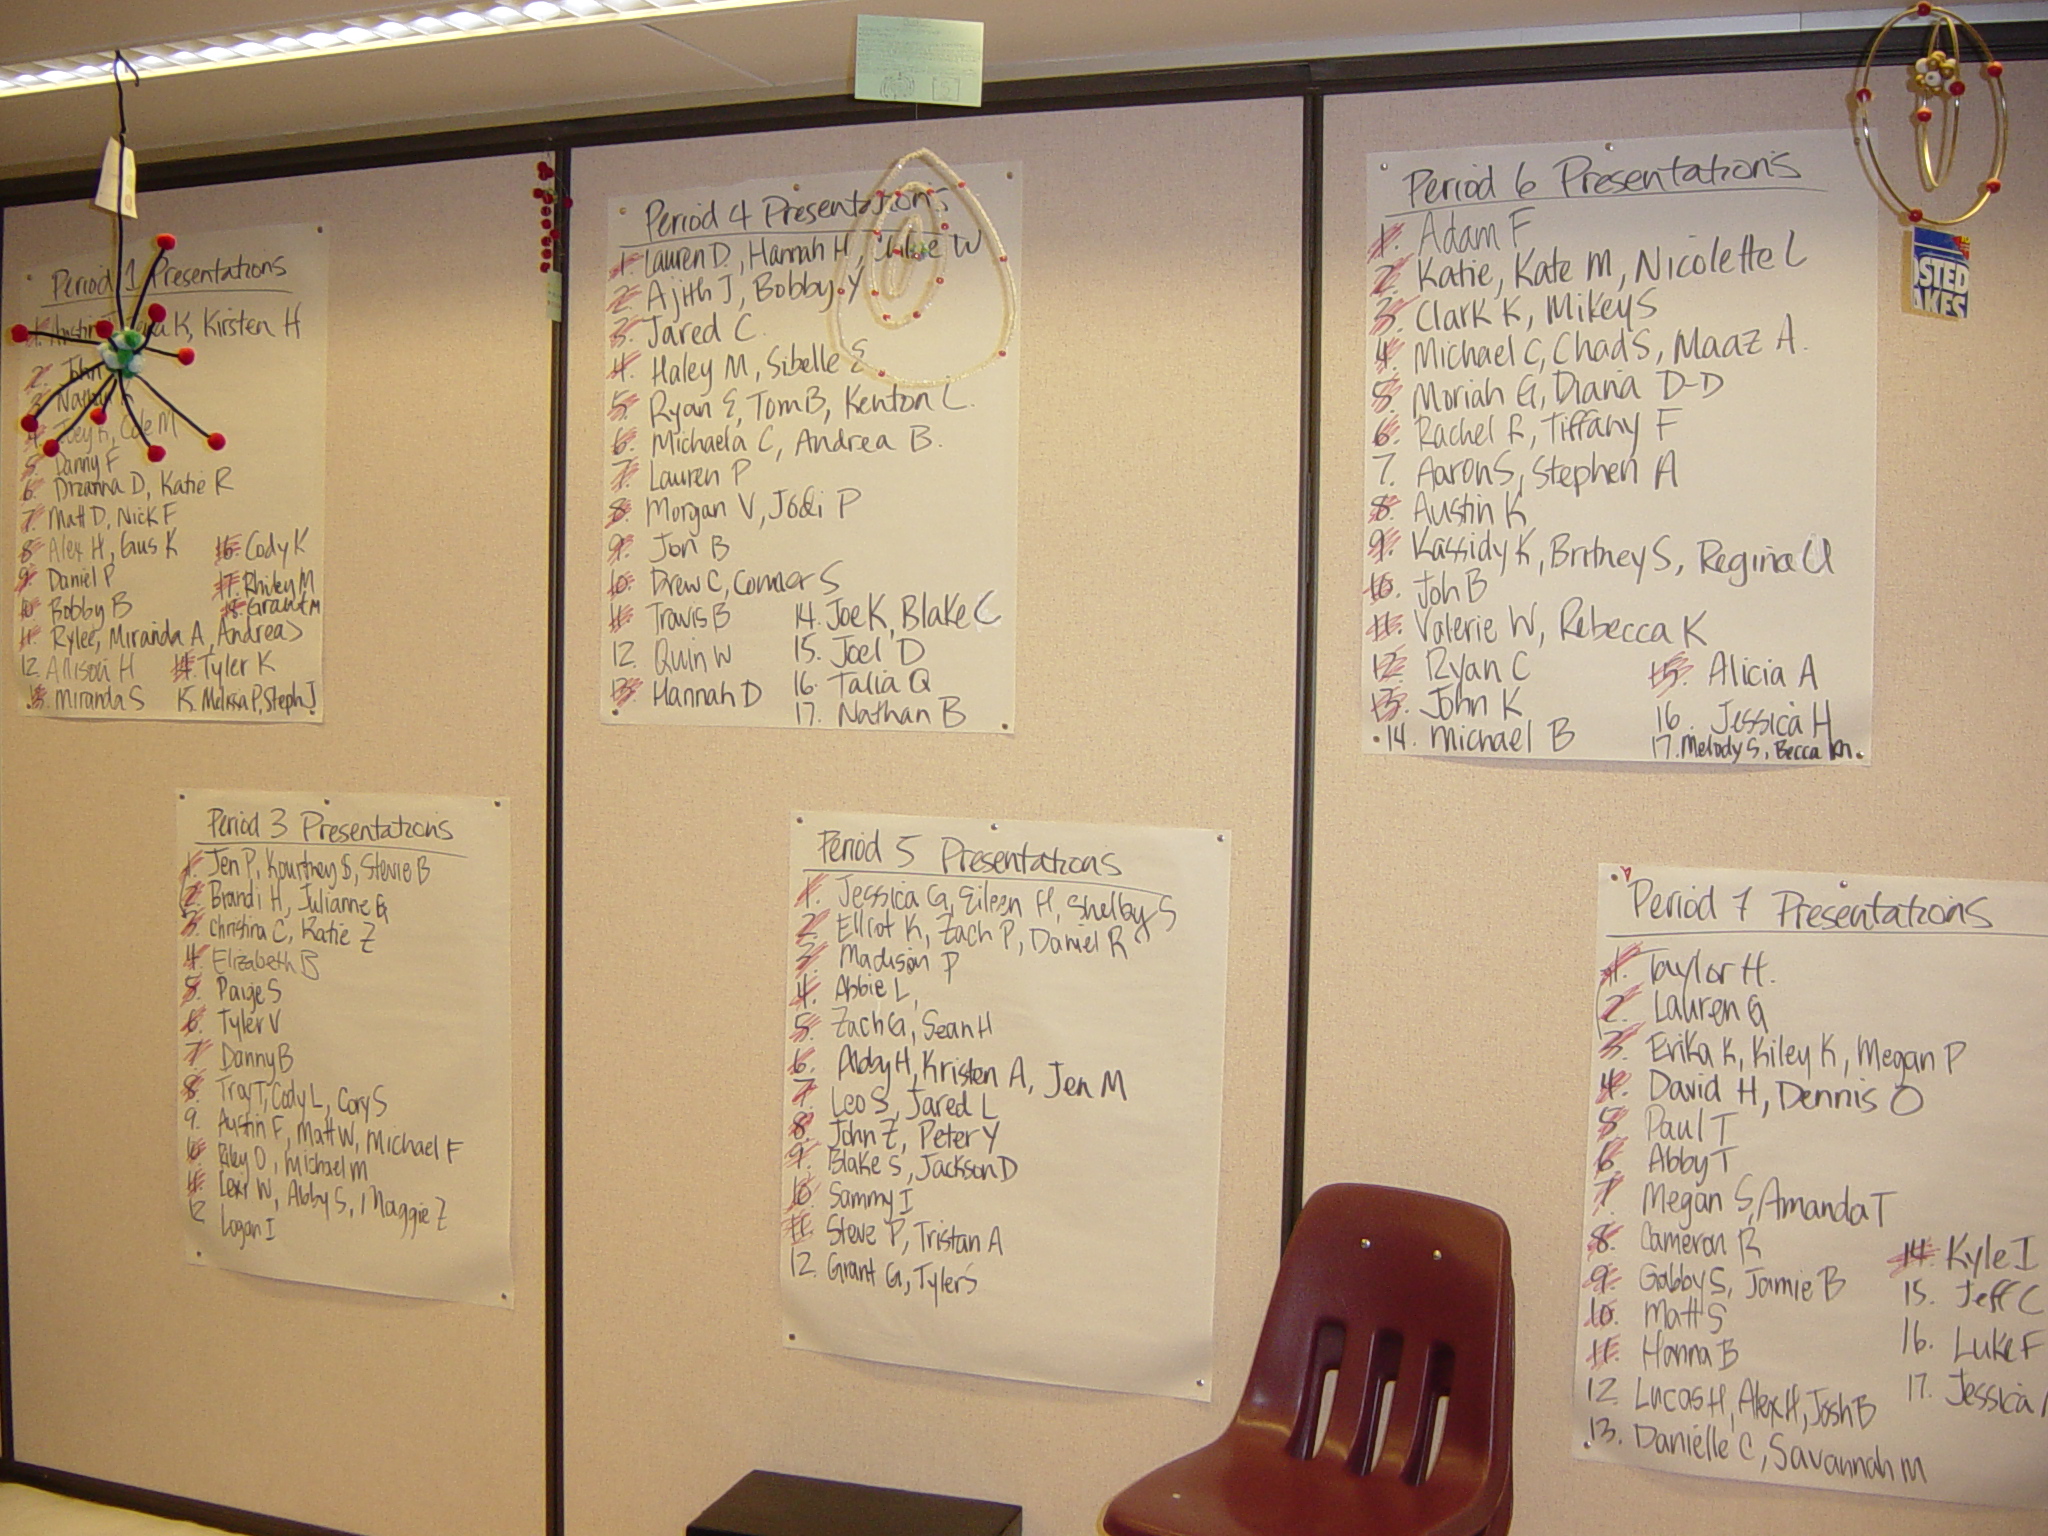 Period 1 Presentations
1. Austin K, Kirsten H
2. John
3. Nathan
4. Joey K, Cole M
5. Danny F
6. D, Katie R
7. Matt D, Nick F
8. Alex H, Gus K
9. Daniel P
10. Bobby B
11. Rylee, Miranda A, Andrea J
12. Allison H
13. Miranda S
14. Tyler K
15. Melissa P, Steph J
16. Cody K
17. Rhiley M
18. Grant M
Period 3 Presentations
1. Jen P, Kourtney S, Stevie B
2. Brandi H, Julianne G
3. Christina C, Katie Z
4. Elizabeth B
5. Paige S
6. Tyler V
7. Danny B
8. Troy T, Cody L, Cory S
9. Austin F, Matt W, Michael F
10. Riley O, Michael M
11. Lexi W, Abby S, Maggie Z
12 Logan I
Period 4 Presentations
1. Lauren D., Hannah H, Chloe W
2. Ajith J, Bobby Y
3. Jared C.
4. Haley M, Sibelle E
5. Ryan E, Tom B, Kenton L.
6. Michaela C, Andrea B.
7. Lauren P
8. Morgan V, Jodi P
9. Jon B
10. Drew C, Connor S
11. Travis B
12. Quin W
13. Hannah D
14. Joe K, Blake C
15. Joel D
16. Talia Q
17. Nathan B
Period 5 Presentations
1. Jessica G, Eileen H, Shelby S
2. Elliot K, Zach P, Daniel R
3. Madison P
4. Abbie L,
5. Zach G, Sean H
6. Abby H, Kristen A, Jen M
7. Leo S, Jared L
8. John Z, Peter Y
9. Blake S, Jackson D
10. Sammy I
11. Steve P, Tristan A
12. Grant G, Tyler S
Period 6 Presentations
1. Adam F
2. Katie, Kate M, Nicolette L
3. Clark K, Mikey S
4. Michael C, Chad S, Maaz A.
5. Moriah G, Diana D-D
6. Rachel R, Tiffany F
7. Aaron S, Stephen A
8. Austin K
9. Kassidy K, Britney S, Regina U
10. Joh B
11. Valerie W, Rebecca K
12. Ryan C
13. John K
14. Michael B
15. Alicia A
16. Jessica H
17. Melody S, Becca M.
Period 7 Presentations
1. Taylor H.
2. Lauren G
3. Erika K, Kiley K, Megan P
4. David H, Dennis O
5. Paul T
6. Abby T
7. Megan S, Amanda T
8. Cameron R
9. Gabby S, Jamie B
10. Matt S
11. Hanna B
12 Lucas H, Alex H, Josh B
13. Danielle C, Savannah M
14. Kyle I
15. Jeff C
16. Luke F
17. Jessica
STED
AKES